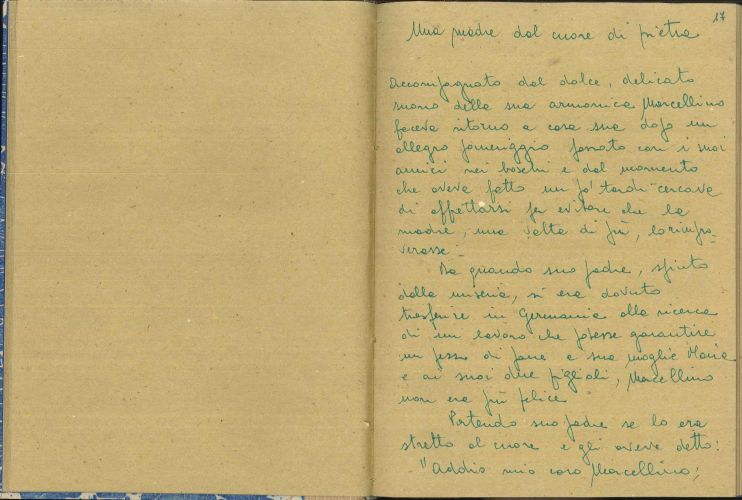 17
Una madre dal cuore di pietra
Accompagnato dal dolce, delicato
suono della sua armonica Marcellino
faceva ritorno a casa sua dopo un
allegro pomeriggio passato con i suoi
amici nei boschi e dal momento
che aveva fatto un po' tardi cercava
di affrettarsi per evitare che la
madre, una volta di più, lo rimpro-
verasse.
Da quando suo padre, spinto
dalla miseria, si era dovuto
trasferire in Germania alla ricerca
di un lavoro che potesse garantire
un pezzo di pane a sua moglie Maria
e ai suoi due figlioli, Marcellino
non era più felice
Partendo suo padre se lo era
stretto al cuore e gli aveva detto:
"Addio mio caro Marcellino;